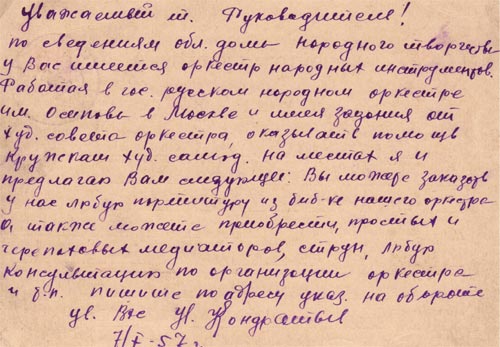 Уважаемый т. Руководитель!
по сведениям обл. дома народного творчества
у Вас имеется оркестр народных инструментов.
Работая в гос. русском народном оркестре
им. Осипова в Москве и имея задания от
худ. совета оркестра, оказывать помощь
кружкам худ. самод. на местах я и
предлагаю Вам следующее: Вы можете заказать
у нас любую партитуру из биб-ке нашего оркестра
а также можете приобрести, простых и
черепаховых медиаторов, струн, любую
консультацию по организации оркестра
и т.п. пишите по адресу указ. на обороте
ув. Вас
7/X-57 г.